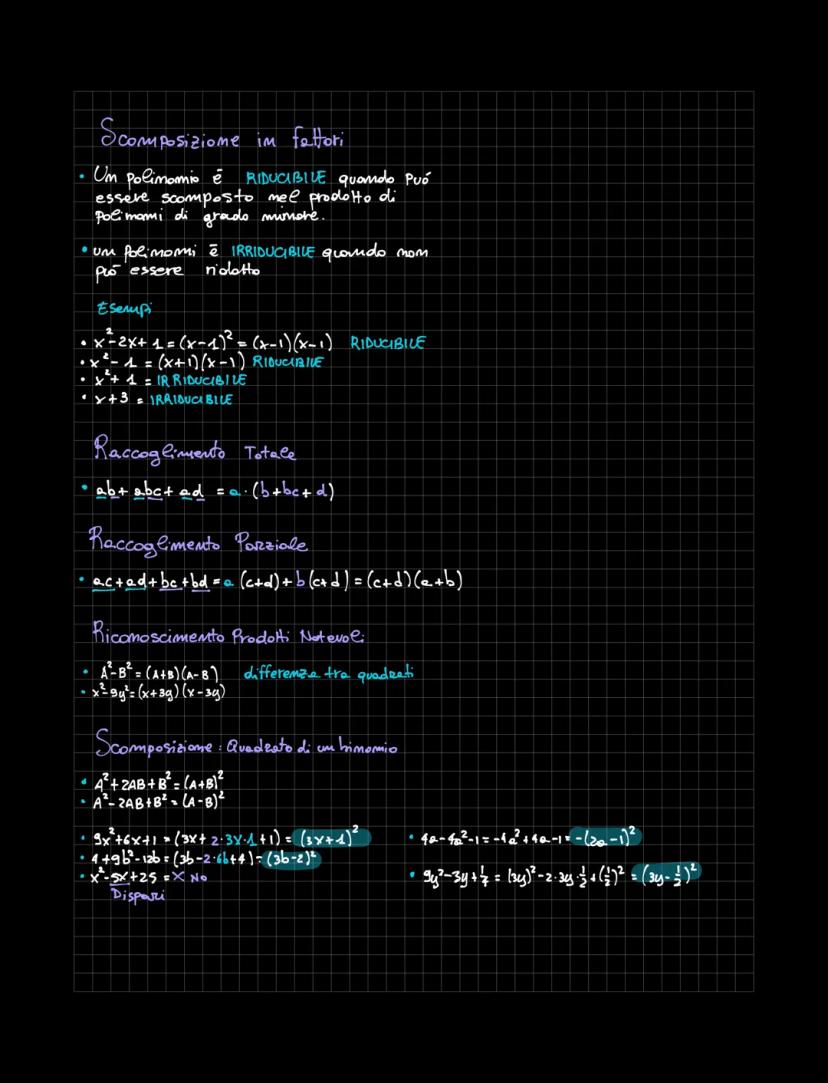 Scomposizione in fattori
• Un polinomio è RIDUCIBILE quando può
essere scomposto nel prodotto di
polinomi di grado minore.
• un polinomi è IRRIDUCIBILE quando non
può essere ridotto
Esempi
• x²-2x+1=(x-1)²=(x-1)(x-1) RIDUCIBILE
• x²-1=(x+1)(x-1) RIDUCIBILE
• x²+1 = IRRIDUCIBILE
• x+3 = IRRIDUCIBILE
Raccoglimento Totale
• ab+abc+ad = a·(b+bc+d)
Raccoglimento Parziale
• ac+ad+bc+bd=a (c+d)+b(c+d)=(c+d)(a+b)
Riconoscimento Prodotti Notevoli
• A²-B²=(A+B)(A-B) differenza tra quadrati
• x²-9y²=(x+3y)(x-3y)
Scomposizione: Quadrato di un binomio
• A²+2AB+B²=(A+B)²
• A²-2AB+B²=(A-B)²
• 9x²+6x+1=(3x+2·3x·1+1)=(3x+1)²
• 4+9b²-12b=(3b-2·6b+4)=(3b-2)²
• x²-5x+25=X No
Dispari
• 4a-4a²-1=-4a²+4a-1=-(2a-1)²
• 9y²-3y+¼=(3y)²-2·3y·½+(½)²=(3y-½)²